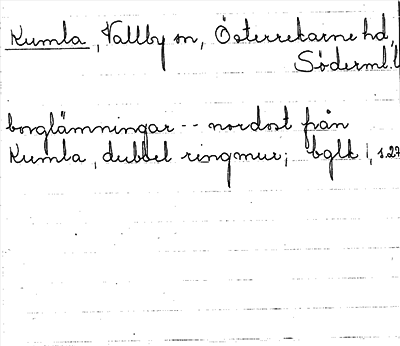 Kumla, Vallby sn, Österrekarne hd,
Söderml. l
borglämningar -- nordost från
Kumla, dubbel ringmur; bglh 1, s. 27